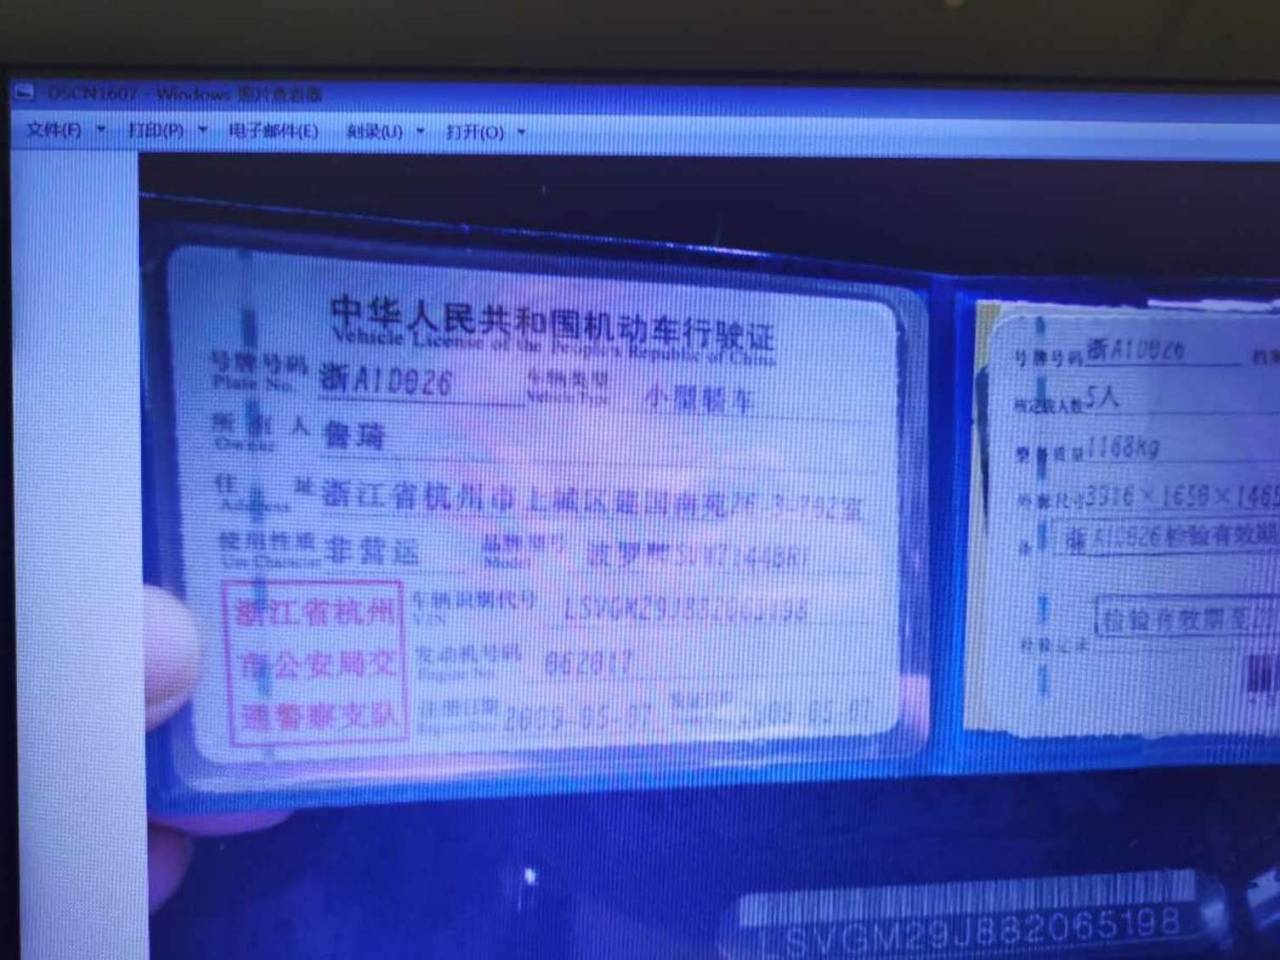 DSCN1607 - Windows 图片查看器
文件(F) 打印(P) 电子邮件(E) 刻录(U) 打开(O)
中华人民共和国机动车行驶证
Vehicle License of the People's Republic of China
号牌号码 浙A1D826 车辆类型 小型轿车
Plate No. Vehicle Type
所有人 鲁琦
Owner
住址 浙江省杭州市上城区建国南苑26-3-702室
Address
使用性质 非营运 品牌型号 波罗牌
Use Character Model
车辆识别代号 LSVGM29J882065198
VIN
发动机号码 062017
Engine No.
注册日期 2009-05-07 发证日期 2009-05-07
浙江省杭州
市公安局交
通警察支队
号牌号码 浙A1D826
核定载人数 5人
整备质量 1168kg
外廓尺寸 3916×1650×1465
浙A1D826检验有效期
检验有效期至
检验记录
LSVGM29J882065198